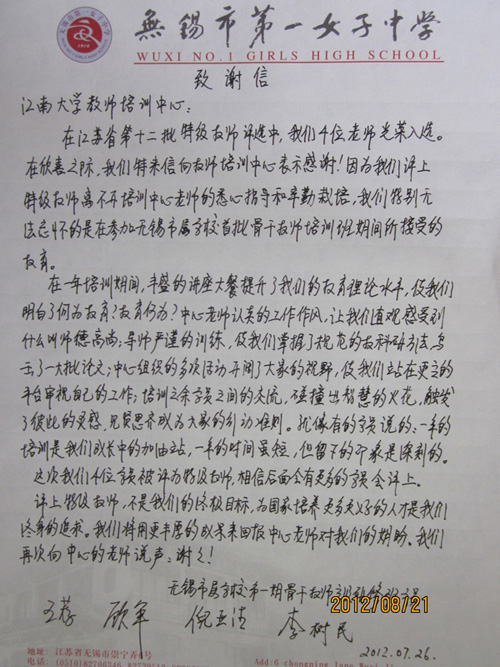 無錫市第一女子中学
WUXI NO.1 GIRLS HIGH SCHOOL
致谢信
江南大学教师培训中心:
在江苏省第十二批特级教师评选中,我们4位老师光荣入选。
在欣喜之际,我们特来信向教师培训中心表示感谢!因为我们评上
特级教师离不开培训中心老师的悉心指导和辛勤栽培,我们特别无
法忘怀的是在参加无锡市属学校首批骨干教师培训班期间所接受的
教育。
在一年培训期间,丰盛的讲座大餐提升了我们的教育理论水平,使我们
明白了何为教育?教育何为?中心老师认真的工作作风,让我们直观感受到
什么叫师德高尚;导师严谨的训练,使我们掌握了规范的教科研方法,写
了一大批论文;中心组织的多次活动开阔了大家的视野,使我们站在更高的
平台审视自己的工作;培训之余学员之间的交流,碰撞出智慧的火花,触发
了彼此的灵感,见贤思齐成为大家的行动准则。就像有的学员说的:一年的
培训是我们成长中的加油站,一年的时间虽短,但留下的印象是深刻的。
这次我们4位学员被评为特级教师,相信后面会有更多的学员会评上。
评上特级教师,不是我们的终极目标,为国家培养更多更好的人才是我们
终身的追求。我们将用更丰厚的成果来回报中心老师对我们的期盼。我们
再次向中心的老师说声:谢谢!
无锡市属学校第一期骨干教师
王 顾军 倪亚清 李树民
2012/08/21
2012.07.26.
地址: 江苏省无锡市崇宁弄4号
电话: (0510)82706346
Add:4 chongning lane Wuxi